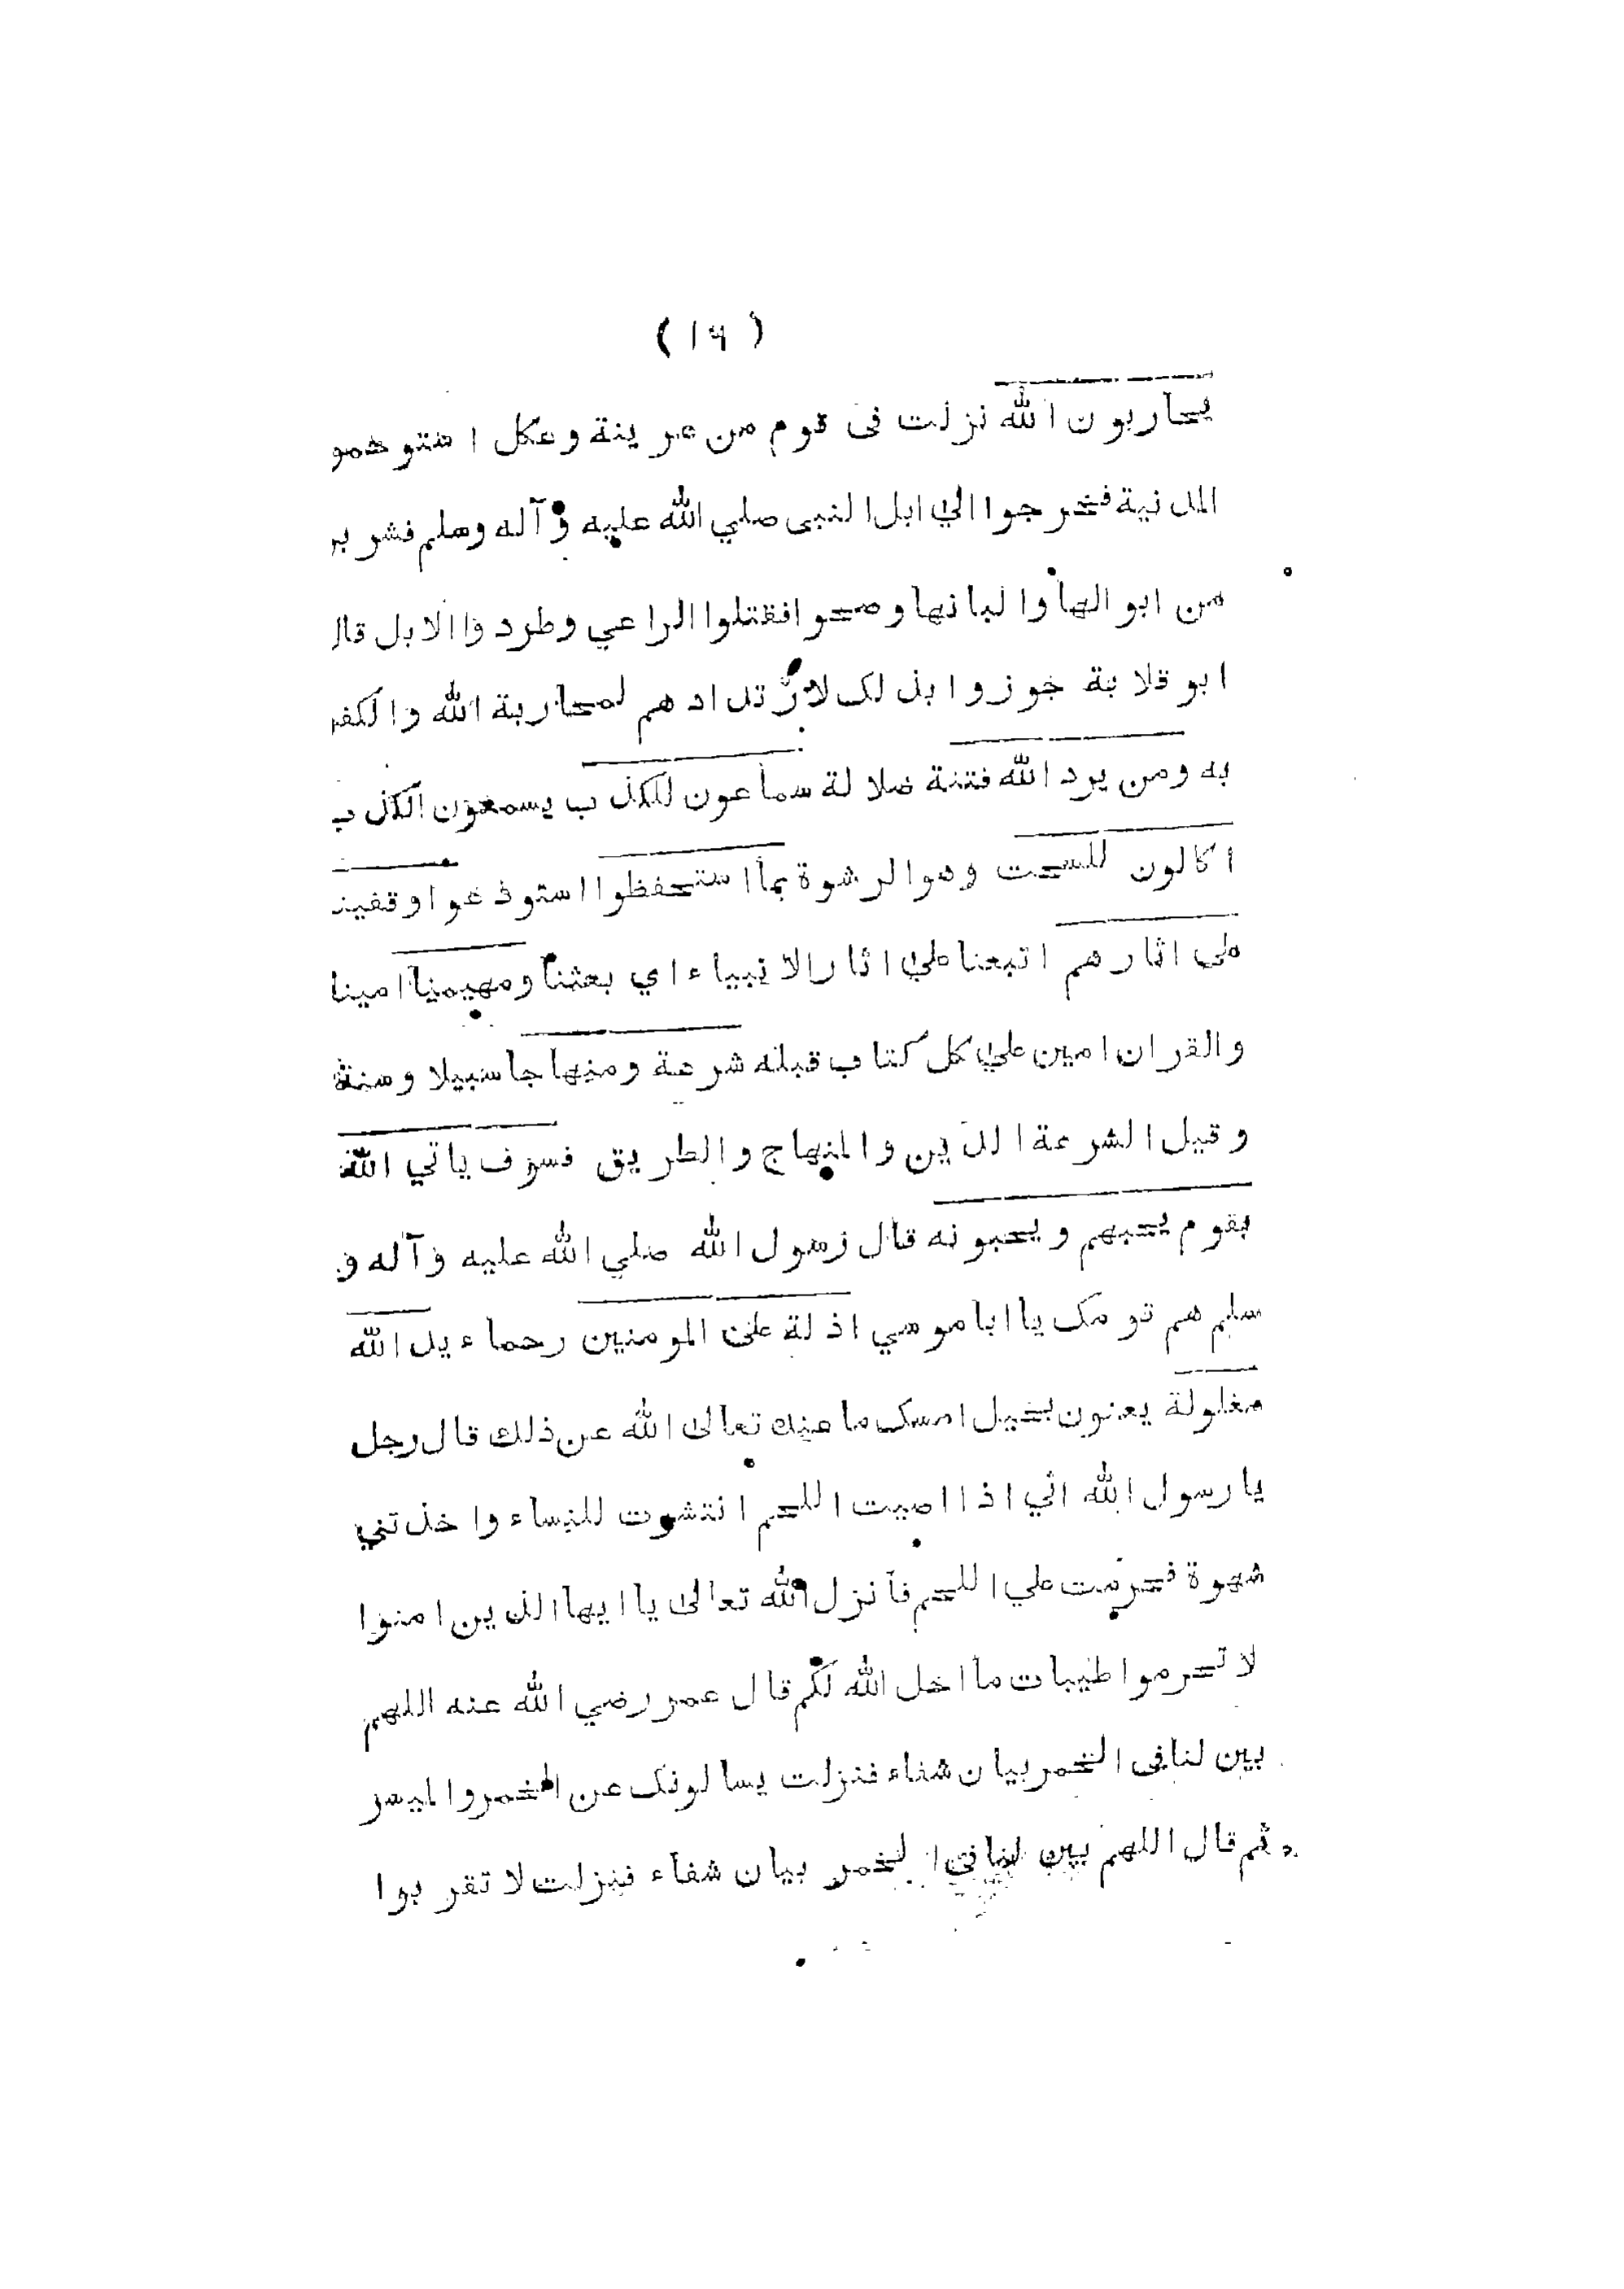 ( ١٦ )
يحاربون الله نزلت فى قوم من عرينة وعكل اشتوخمو
المدنية فخرجوا الي ابل النبى صلي الله عليه وآله وسلم فشربو
من ابوالها والبانها وصحوا فقتلوا الراعي وطردوا الابل قال
ابو قلابة جوزوا بذلک لارتدادهم لمحاربة الله والكفر
به ومن يرد الله فتنة ضلالة سماعون للكذب يسمعون الكذب
اكالون للسحت وهو الرشوة بما استحفظوا استودعوا وقفينا
على اثارهم اتبعنا علي اثار الانبياء اي بعثنا ومهيمنا امينا
والقران امين علي كل كتاب قبله شرعة ومنهاجا سبيلا وسنة
وقيل الشرعة الدين والمنهاج والطريق فسوف ياتي الله
بقوم يحبهم ويحبونه قال رسول الله صلي الله عليه وآله و
سلم هم قومک يا ابا موسي اذلة على المومنين رحماء يد الله
مغلولة يعنون بخيل امسک ما عنده تعالى الله عن ذلك قال رجل
يا رسول الله اني اذا اصبت اللحم انتشرت للنساء واخذتني
شهوة فحرمت علي اللحم فانزل الله تعالى يا ايها الذين امنوا
لا تحرموا طيبات ما احل الله لكم قال عمر رضي الله عنه اللهم
بين لنا فى الخمر بيان شفاء فنزلت يسالونک عن الخمر والميسر
ثم قال اللهم بين لنا فى الخمر بيان شفاء فنزلت لا تقربوا